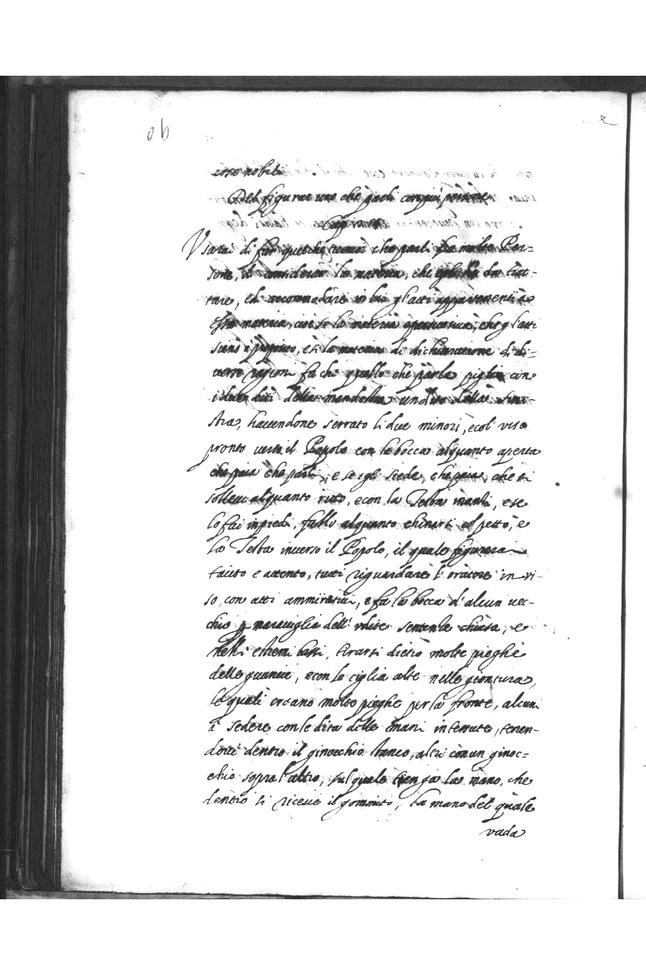 cose nobili
Del figurar uno che parli con più persone
Cap.
Userai di far quello che tu vuoi che parli fra molte Per=
sone, di considerar la materia, che egli ha da trat-
tare, et di accomodare in lui gl'atti appartenenti a
essa materia, cioè se la materia è persuasiva, che gl'atti
siano a proposito, e se la materia è di dichiarazione di di-
verse ragioni fa che quello che parla pigli con
i due diti della man destra un dito della sini-
stra, havendone serrato li due minori, e col viso
pronto verso il Popolo con la bocca alquanto aperta
che paia che parli, e se egli siede, che paia, che si
sollevi alquanto ritto, e con la Testa inanzi, e se
lo fai in piedi, fallo alquanto chinarsi col petto, e
la Testa inverso il Popolo, il quale figurerai
tacito e attento, tutti riguardare l'oratore in vi-
so, con atti ammirativi, e fa la bocca d'alcun vec-
chio p maraviglia dell'udite sentenze chiusa, e
nelli estremi bassi, tirarsi dietro molte pieghe
delle guancie, e con le ciglia alte nelle giontura,
le quali creano molte pieghe per la fronte, alcuni
à sedere con le dita delle mani intessute, tenen-
dovi dentro il ginocchio stanco, altri con un ginoc=
chio sopra l'altro, sul quale tenga la mano, che
dentro si riceve il gomito, la mano del quale
vada